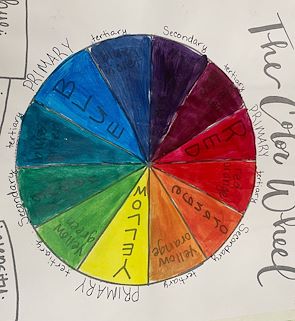 The Color Wheel
PRIMARY
tertiary
Secondary
tertiary
PRIMARY
tertiary
Secondary
tertiary
PRIMARY
tertiary
Secondary
tertiary
BLUE
RED
red
orange
orange
yellow
orange
YELLOW
yellow
green